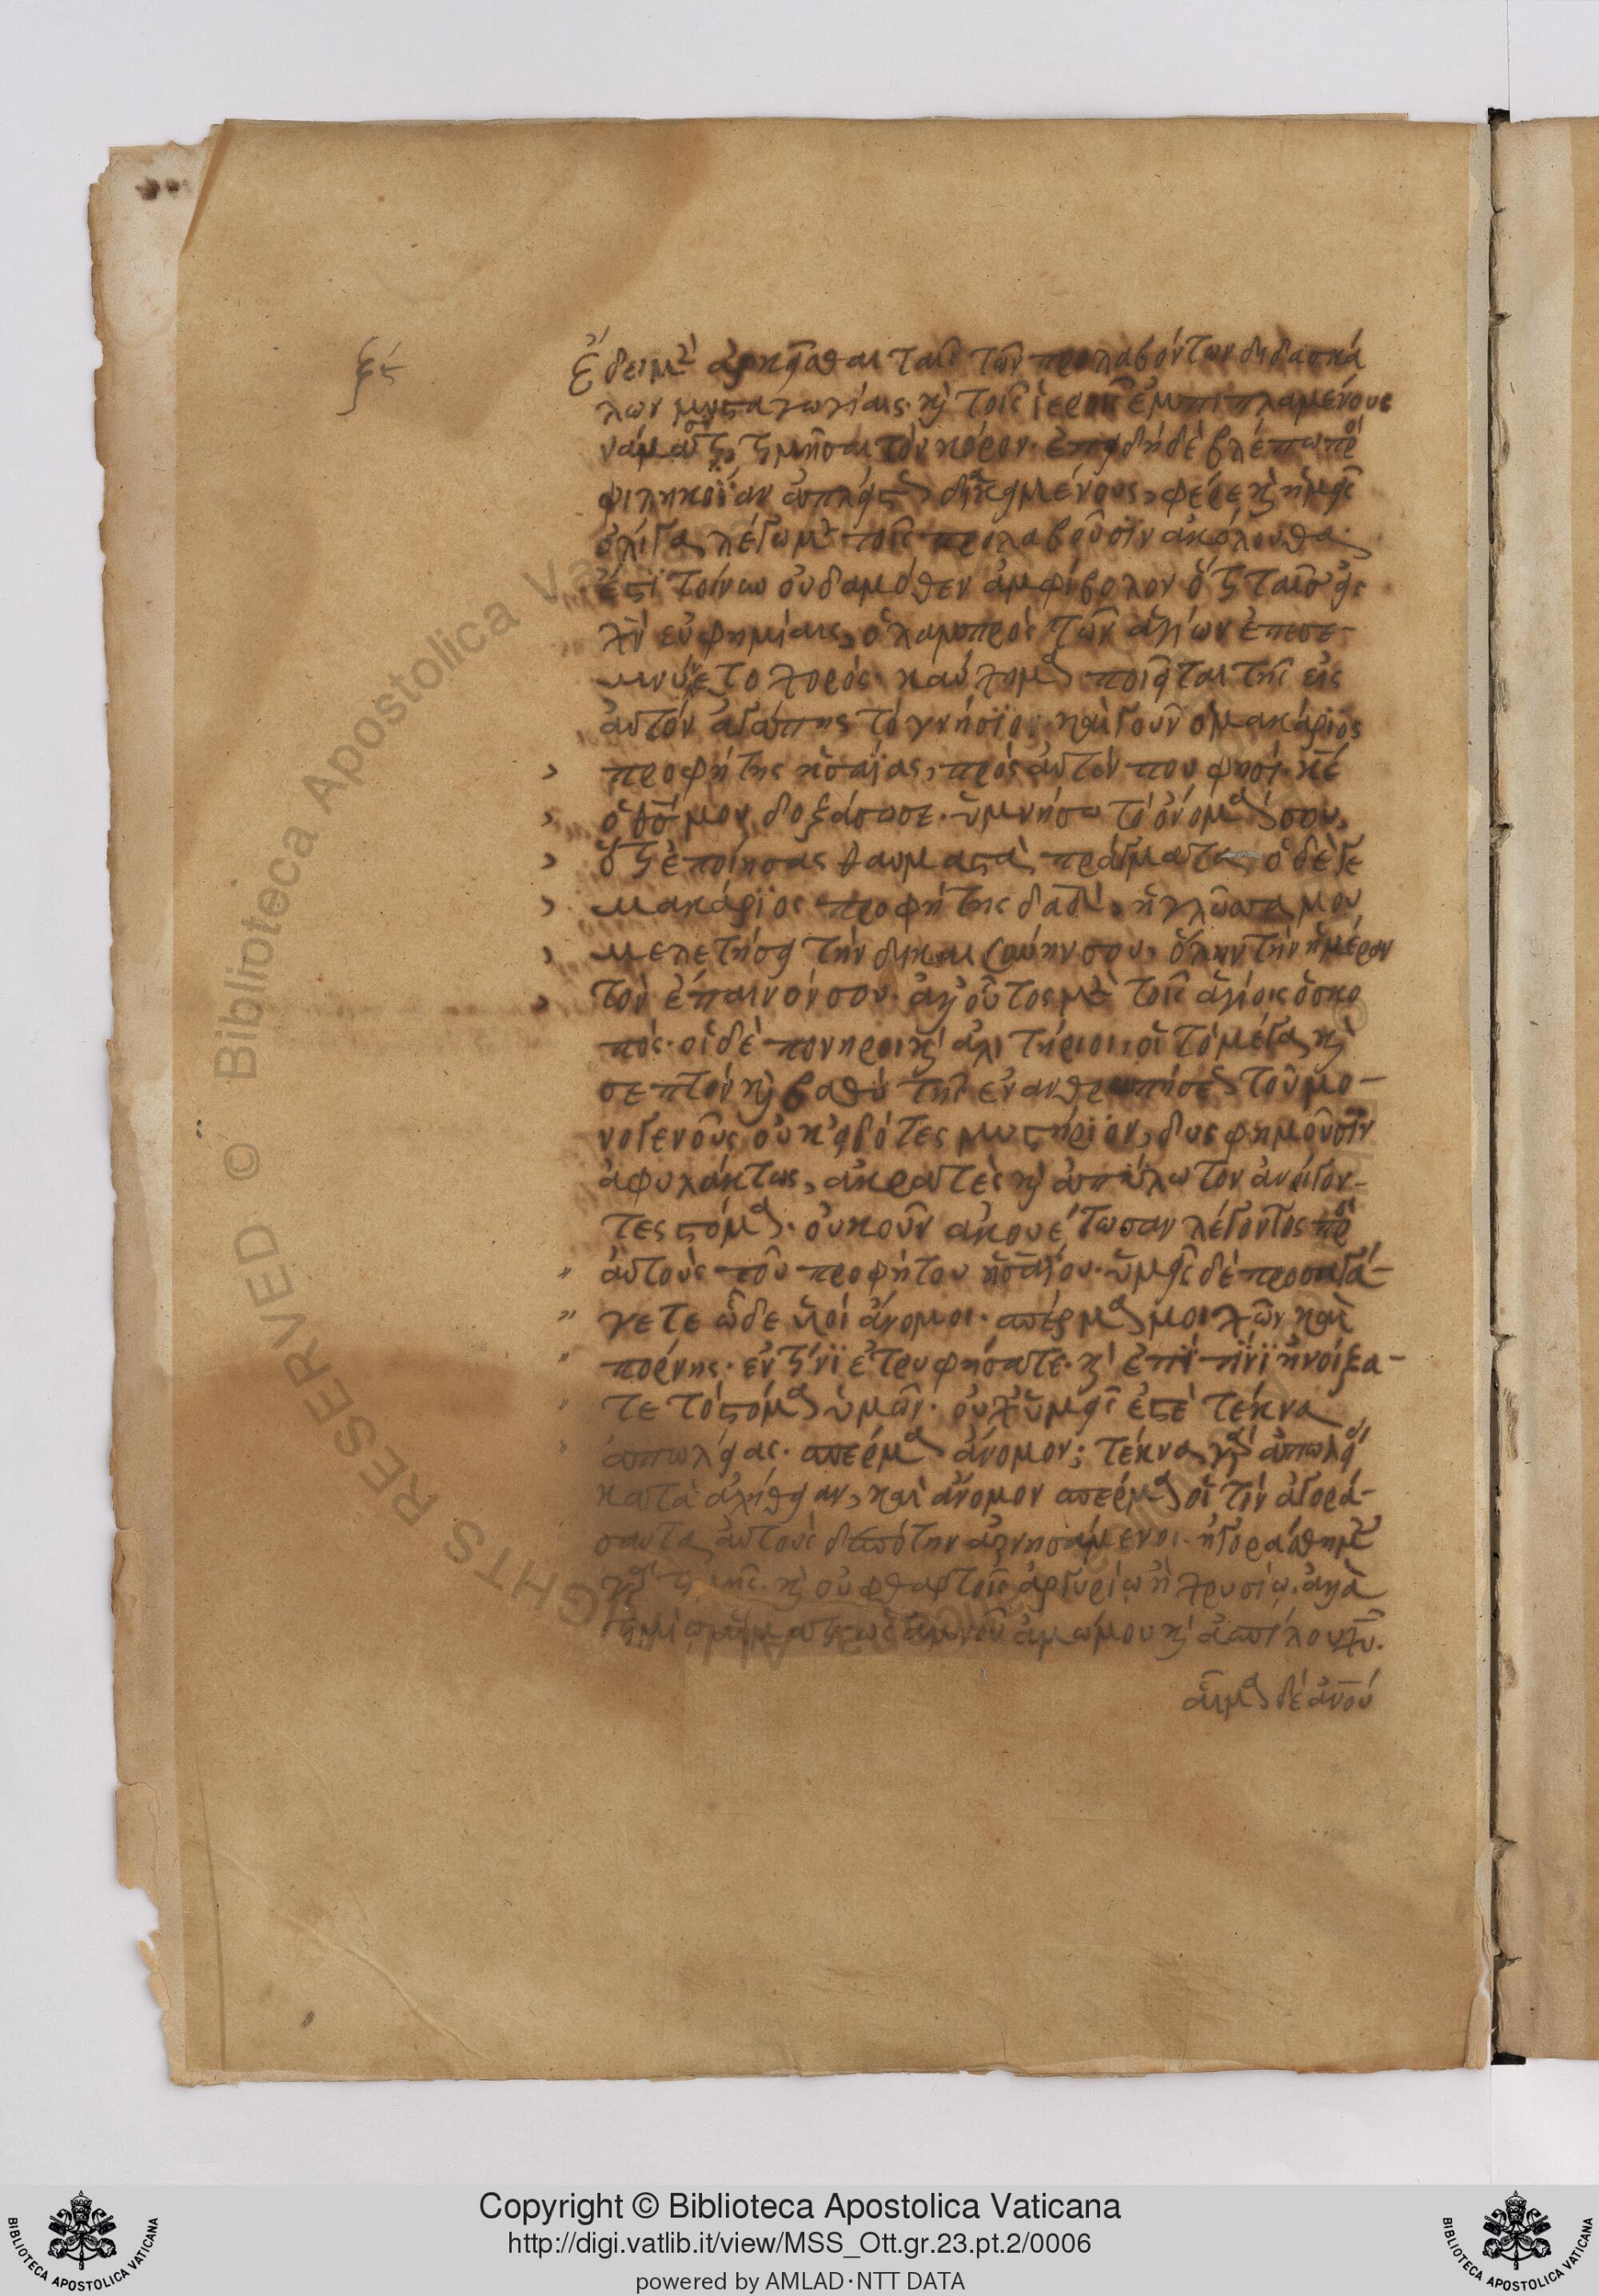 ξϛ
Ἔδει μὲν ἀρκεῖσθαι ταῖς τῶν προλαβόντων διδασκά
λων μυσταγωγίαις· καὶ τοῖς ἱεροῖς ἐμπιπλαμένους
νάμασι, τιμῆσαι τὸν κόρον· ἐπειδὴ δὲ βλέπω πρὸς
φιληκοΐαν ἀπλήστως διακειμένους, φέρε καὶ ἡμεῖς
ὀλίγα λέγωμεν τοῖς προλαβοῦσιν ἀκόλουθα·
ἔστι τοίνυν οὐδαμόθεν ἀμφίβολον ὅτι ταῖς εἰς
χν εὐφημίαις, ὁ λαμπρὸς τῶν ἁγίων ἐπισε-
μνύνετο χορός· καύχημα ποιεῖται τῆς εἰς
αὐτὸν ἀγάπης τὸ γνήσιον· καὶ γοῦν ὁ μακάριος
προφήτης ἡσαΐας, πρὸς αὐτόν που φησί· κε
ὁ θς μου δοξάσω σε· ὑμνήσω τὸ ὄνομά σου,
ὅτι ἐποίησας θαυμαστὰ πράγματα· ὁ δέ γε
μακάριος προφήτης δαδ, ἡ γλῶσσα μου
μελετήσει τὴν δικαιοσύνην σου, ὅλην τὴν ἡμέραν
τὸν ἔπαινόν σου· ἀλλ' οὗτος μὲν τοῖς ἁγίοις ὁ σκο
πός· οἱ δὲ πονηροὶ καὶ ἀλιτήριοι, οἳ τὸ μέγα καὶ
σεπτὸν καὶ βαθὺ τῆς ἐνανθρωπήσεως τοῦ μο-
νογενοῦς οὐκ εἰδότες μυστήριον, δυσφημοῦσιν
ἀφυλάκτως, ἀκρατὲς καὶ ἀπύλωτον ἀνοίγον-
τες στόμα· οὐκοῦν ἀκουέτωσαν λέγοντος πρὸς
αὐτοὺς τοῦ προφήτου ἡσαΐου· ὑμεῖς δὲ προσαγά-
γετε ὧδε υἱοὶ ἄνομοι· σπέρμα μοιχῶν καὶ
πόρνης· ἐν τίνι ἐτρυφήσατε· καὶ ἐπὶ τίνι ἠνοίξα-
τε τὸ στόμα ὑμῶν· οὐχ ὑμεῖς ἐστὲ τέκνα
ἀπωλείας· σπέρμα ἄνομον; τέκνα γὰρ ἀπωλείας
κατὰ ἀλήθειαν, καὶ ἄνομον σπέρμα οἱ τὸν ἀγορά-
σαντα αὐτοὺς δεσπότην ἀρνησάμενοι· ἠγοράσθημεν
γὰρ τιμῆς· καὶ οὐ φθαρτοῖς ἀργυρίῳ ἢ χρυσίῳ· ἀλλὰ
τιμίῳ αἵματι ὡς ἀμνοῦ ἀμώμου καὶ ἀσπίλου χυ.
αἷμα δὲ ἀνου
Copyright © Biblioteca Apostolica Vaticana
http://digi.vatlib.it/view/MSS_Ott.gr.23.pt.2/0006
powered by AMLAD·NTT DATA